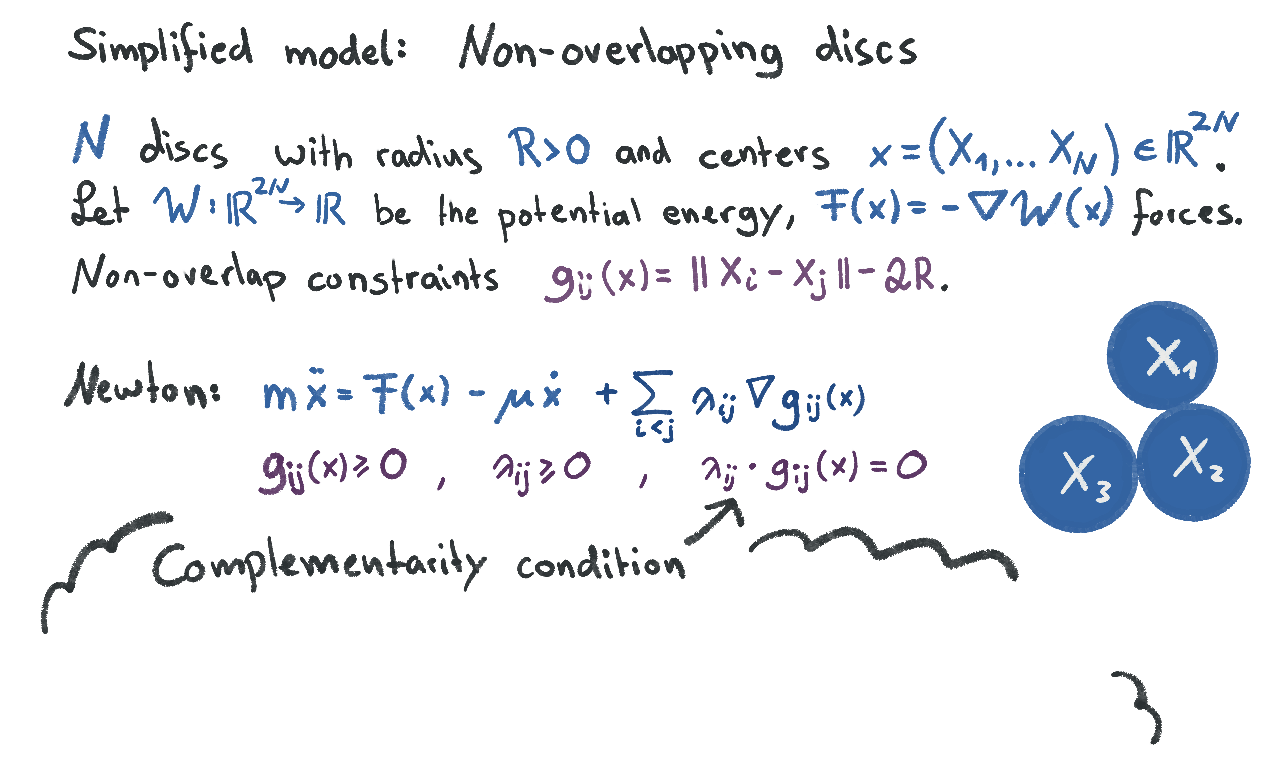 Simplified model: Non-overlapping discs
N discs with radius R>0 and centers x=(X₁,... X_N) ∈ ℝ²ᴺ.
Let W: ℝ²ᴺ → ℝ be the potential energy, F(x) = - ∇W(x) forces.
Non-overlap constraints g_ij(x) = ‖X_i - X_j‖ - 2R.
Newton: mẍ = F(x) - μẋ + ∑_{i<j} λ_ij ∇g_ij(x)
g_ij(x) ≥ 0 , λ_ij ≥ 0 , λ_ij · g_ij(x) = 0
Complementarity condition
X₁
X₃ X₂